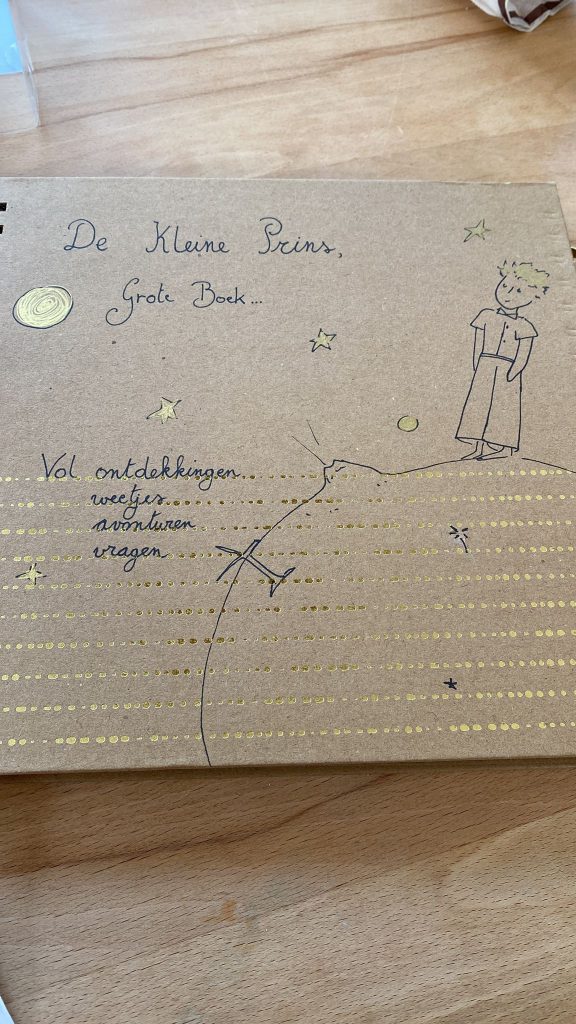 De Kleine Prins,
Grote Boek...
Vol ontdekkingen
weetjes
avonturen
vragen